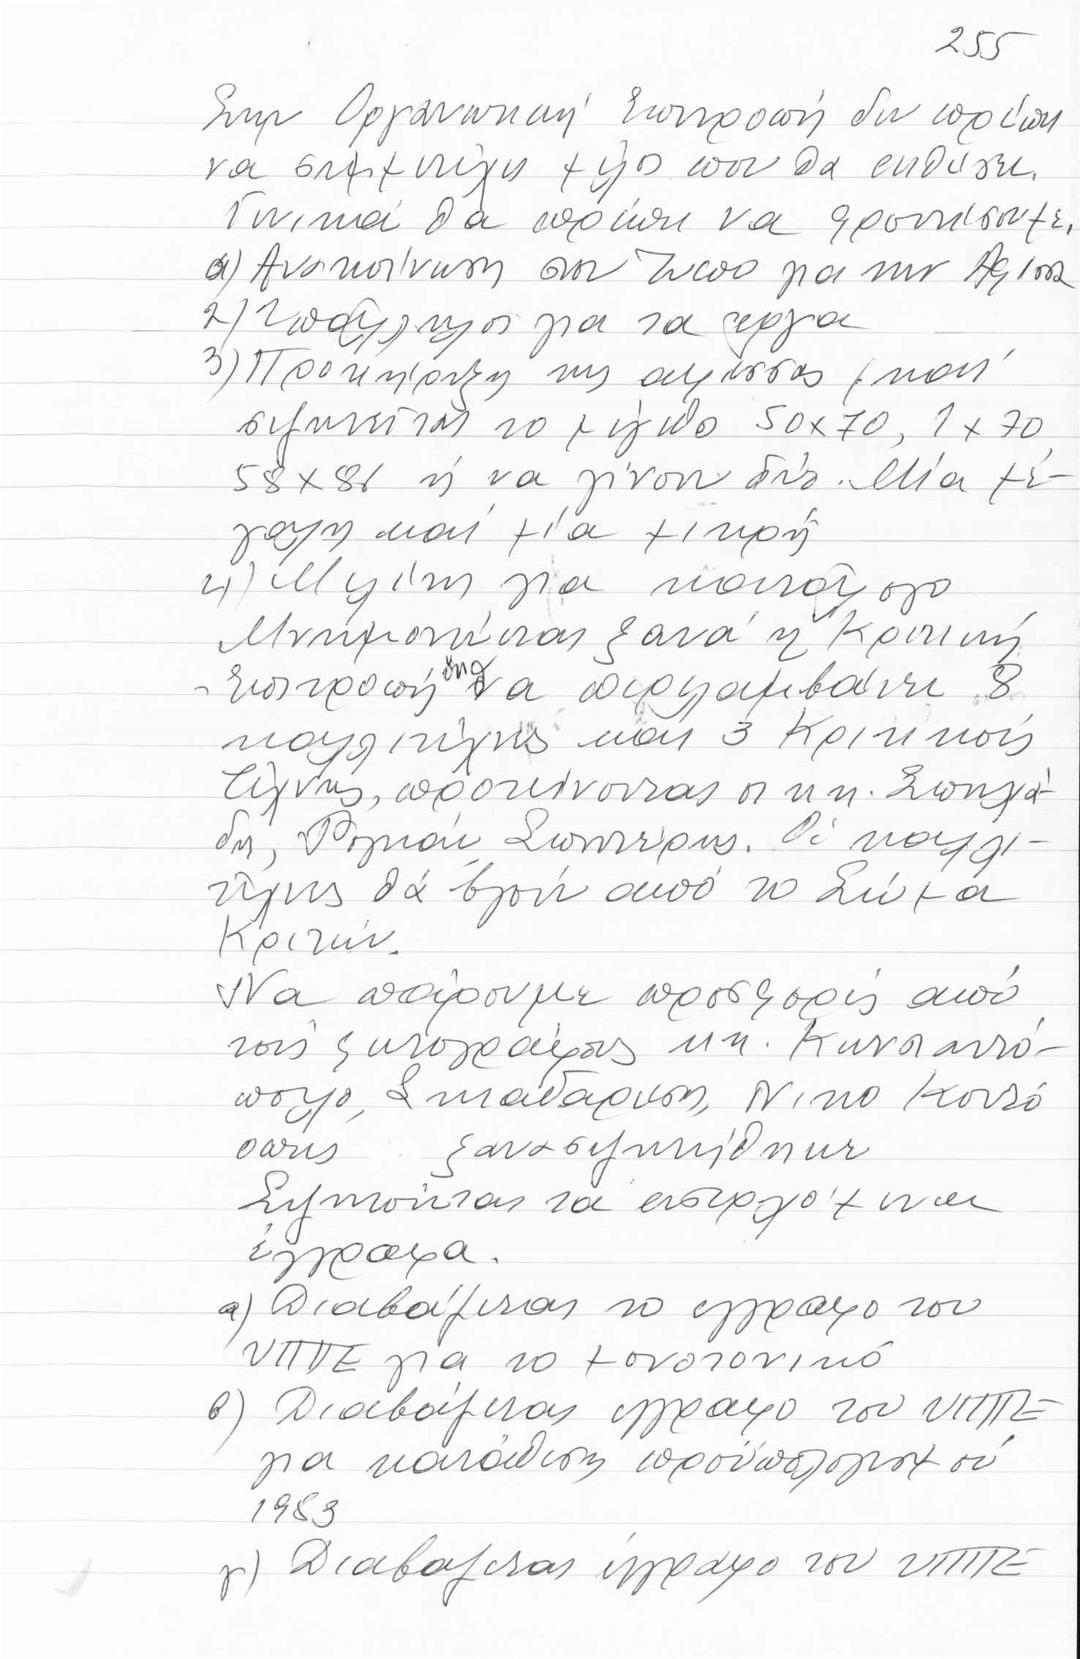 255
Στην Οργανωτική Επιτροπή δεν πρέπει
να συμμετέχει μέλος που θα εκθέσει.
Γενικά θα πρέπει να φροντίσουμε.
α) Ανακοίνωση στον Τύπο για την Αφίσσα
2) Υπάλληλοι για τα έργα
3) Προκήρυξη της αφίσσας, και
συζητείται το μέγεθος 50x70, 1x70
58x81 ή να γίνουν δύο. Μία με-
γάλη και μία μικρή
4) Μελέτη για κατάλογο
Μνημονεύεται ξανά η Κριτική
Επιτροπή να περιλαμβάνει 8
καλλιτέχνες και 3 Κριτικούς
Τέχνης, προτείνονται οι κ.κ. Σπητέρης. Οι καλλι-
τέχνες θά βγούν από το Σώμα
Κριτών.
Να πάρουμε προσφορές από
τούς φωτογράφους κ.κ. Κωνσταντό-
πουλο, Σκιαδαρέση, Νίκο Κοντό
όπως ξανασυζητήθηκε
Συζητούνται τα εισερχόμενα
έγγραφα.
α) Διαβάζεται το έγγραφο του
ΥΠΠΕ για το μονοτονικό
β) Διαβάζεται έγγραφο του ΥΠΠΕ
για κατάθεση προϋπολογισμού
1983
γ) Διαβάζεται έγγραφο του ΥΠΠΕ